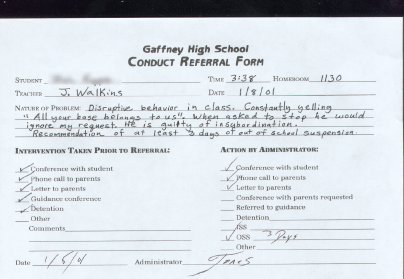 Gaffney High School
CONDUCT REFERRAL FORM
STUDENT TIME 3:38 HOMEROOM 1130
TEACHER J. Walkins DATE 1/8/01
NATURE OF PROBLEM: Disruptive behavior in class. Constantly yelling
"All your base belongs to us". When asked to stop he would
ignore my request. He is guilty of insubordination.
Recommendation of at least 3 days of out of school suspension
INTERVENTION TAKEN PRIOR TO REFERRAL:
✓ Conference with student
✓ Phone call to parents
✓ Letter to parents
✓ Guidance conference
✓ Detention
Other
Comments
Date 1/8/01
ACTION BY ADMINISTRATOR:
✓ Conference with student
✓ Phone call to parents
✓ Letter to parents
Conference with parents requested
Referred to guidance
Detention
ISS
✓ OSS 3 Days
Other
Administrator Jones